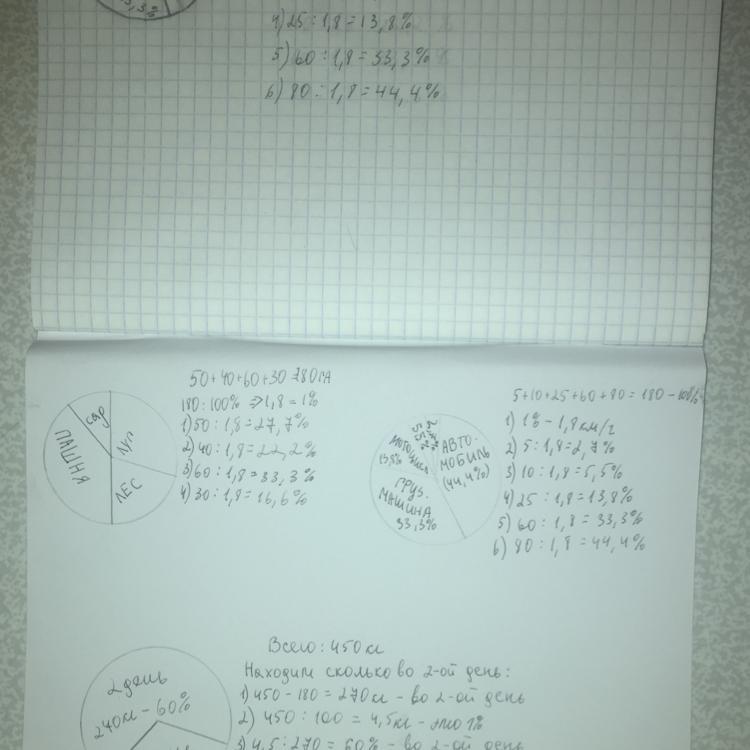 3,3%
4) 25 : 1,8 = 13,8%
5) 60 : 1,8 = 33,3%
6) 80 : 1,8 = 44,4%
50+40+60+30=180 га
180:100% => 1,8 = 1%
1) 50 : 1,8 = 27,7%
2) 40 : 1,8 = 22,2%
3) 60 : 1,8 = 33,3%
4) 30 : 1,8 = 16,6%
сад
ПАШНЯ
Луг
ЛЕС
5+10+25+60+80 = 180 - 100%
1) 1% - 1,8 км/г
2) 5 : 1,8 = 2,7%
3) 10 : 1,8 = 5,5%
4) 25 : 1,8 = 13,8%
5) 60 : 1,8 = 33,3%
6) 80 : 1,8 = 44,4%
АВТО-
МОБИЛЬ
(44,4%)
13,8%
ГРУЗ.
МАШИНА
33,3%
Всего: 450 кг
Находим сколько во 2-ой день:
1) 450 - 180 = 270 кг - во 2-ой день
2) 450 : 100 = 4,5 кг - это 1%
3) 4,5 : 270 = 60% - во 2-ой день
2 день
240 кг - 60%